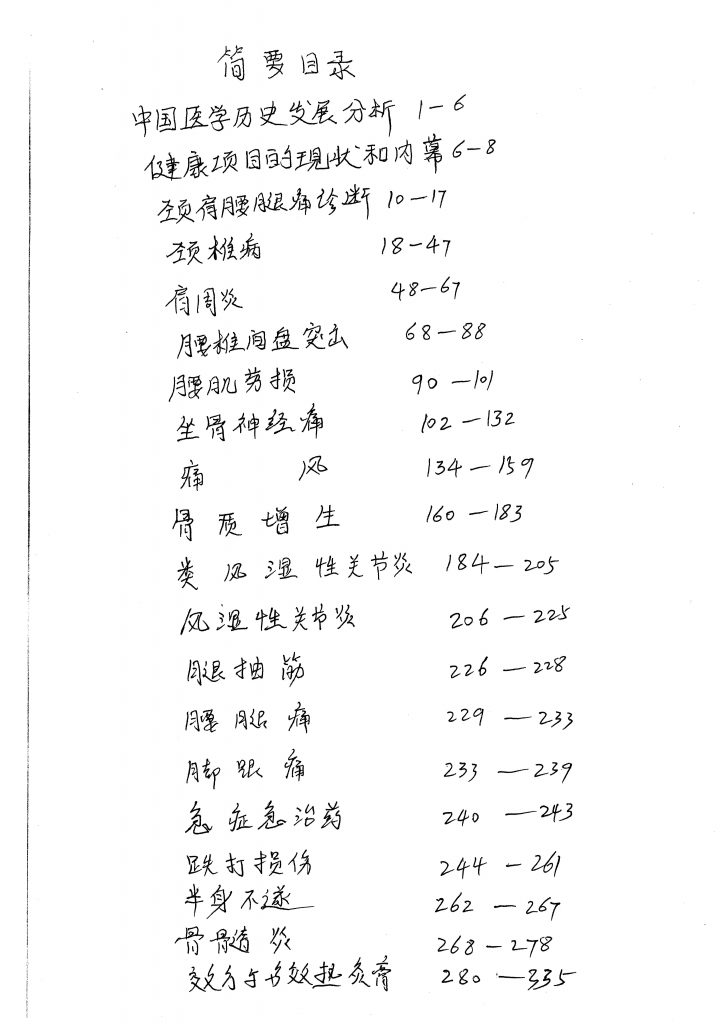 简要目录
中国医学历史发展分析 1-6
健康项目的现状和内幕 6-8
颈肩腰腿痛诊断 10-17
颈椎病 18-47
肩周炎 48-67
腰椎间盘突出 68-88
腰肌劳损 90-101
坐骨神经痛 102-132
痛风 134-159
骨质增生 160-183
类风湿性关节炎 184-205
风湿性关节炎 206-225
腿抽筋 226-228
腰腿痛 229-233
脚跟痛 233-239
急症急治药 240-243
跌打损伤 244-261
半身不遂 262-267
骨髓炎 268-278
效方与 效热灸膏 280-335